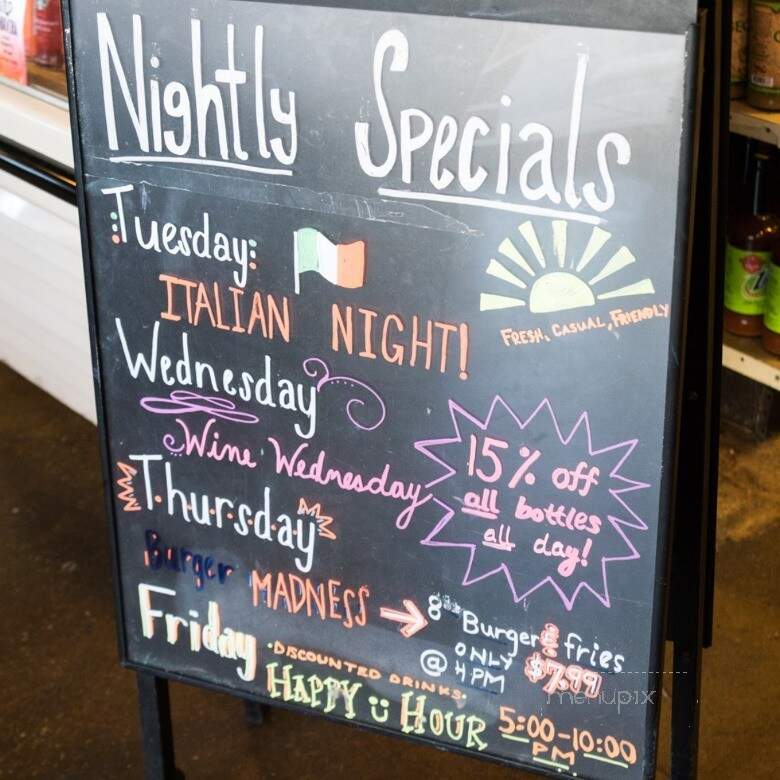 Nightly Specials
Tuesday:
ITALIAN NIGHT!
FRESH, CASUAL, FRIENDLY
Wednesday
Wine Wednesday
15% off
all bottles
all day!
Thursday
Burger MADNESS → Burger & fries
ONLY $7.99
@ 4PM
Friday
·DISCOUNTED DRINKS·
HAPPY HOUR 5:00-10:00
PM
menupix